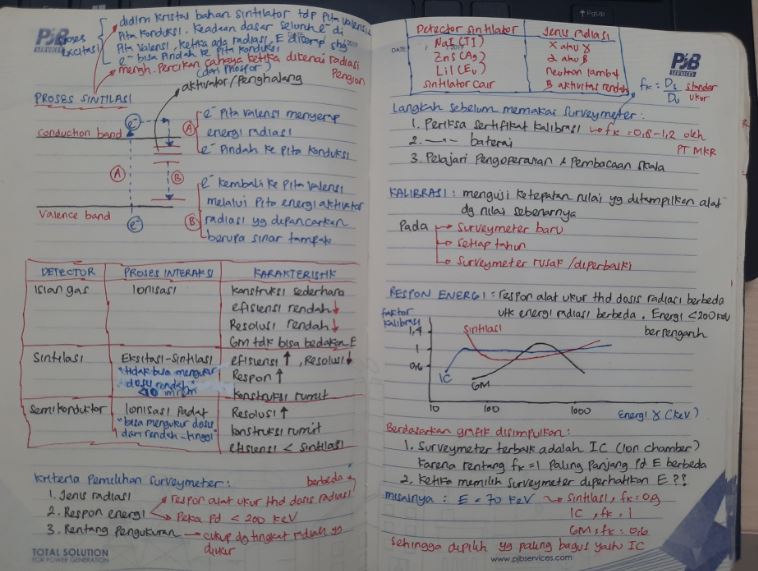 Proses
Eksitasi
didlm kristal bahan sintilator tdp Pita Valensi &
Pita Konduksi. Keadaan dasar seluruh e⁻ di
Pita Valensi, ketika ada radiasi, E diserap shg
e⁻ bisa Pindah ke Pita Konduksi
mengh. Percikan cahaya ketika dikenai radiasi
(dari Phosfor) Pengion
PJB
SERVICES
PROSES SINTILASI
aktivator/Penghalang
Conduction band
e⁻
A
B
Valence band
e⁻
A
e⁻ Pita Valensi menyerap
energi radiasi
e⁻ Pindah ke Pita Konduksi
B
e⁻ kembali ke Pita valensi
melalui Pita energi aktivator
radiasi yg dipancarkan
berupa sinar tampak
DETECTOR PROSES INTERAKSI KARAKTERISTIK
Isian gas Ionisasi Konstruksi sederhana
efisiensi rendah ↓
Resolusi rendah ↓
GM tdk bisa bedakan E
Sintilasi Eksitasi-Sintilasi efisiensi ↑, Resolusi ↓
"tidak bisa mengukur Respon ↑
dosis rendah" Konstruksi rumit
Semikonduktor Ionisasi Padat Resolusi ↑
"bisa mengukur dosis konstruksi rumit
dari rendah-tinggi" efisiensi < sintilasi
Kriteria Pemilihan Surveymeter :
berbeda
1. Jenis radiasi
respon alat ukur thd dosis radiasi
2. Respon energi
Peka Pd < 200 keV
3. Rentang Pengukuran → cukup dg tingkat radiasi yg
diukur
TOTAL SOLUTION
FOR POWER GENERATION
DATE
Detector sintilator Jenis radiasi
NaI (Tl) X atau γ
ZnS (Ag) α atau β
LiI (Eu) neutron lambat
Sintilator cair β aktivitas rendah
PJB
SERVICES
fk = Ds standar
Du ukur
Langkah sebelum memakai surveymeter :
1. Periksa sertifikat kalibrasi → fk = 0,8 - 1,2 oleh
PT MKR
2. —〃— baterai
3. Pelajari Pengoperasian & Pembacaan skala
KALIBRASI : menguji ketepatan nilai yg ditampilkan alat
dg nilai sebenarnya
Pada
Surveymeter baru
Setiap tahun
Surveymeter rusak /diperbaiki
RESPON ENERGI : respon alat ukur thd dosis radiasi berbeda
utk energi radiasi berbeda. Energi < 200 keV
berpengaruh
faktor
kalibrasi
1,4
1
0,6
Sintilasi
IC
GM
10 100 1000 Energi γ (keV)
Berdasarkan grafik disimpulkan :
1. Surveymeter terbaik adalah IC (Ion chamber)
karena rentang fk = 1 Paling Panjang pd E berbeda
2. Ketika memilih surveymeter diperhatikan E ??
misalnya : E = 70 keV → sintilasi, fk = 0,9
IC, fk = 1
GM, fk = 0,6
Sehingga dipilih yg paling bagus yaitu IC
www.pjbservices.com